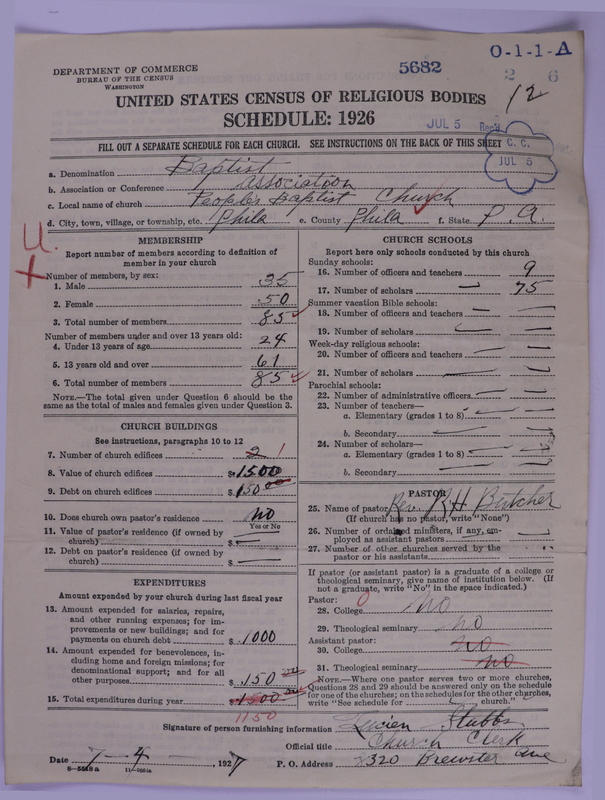 O-1-1-A
5682
2 6
DEPARTMENT OF COMMERCE
BUREAU OF THE CENSUS
WASHINGTON
12
UNITED STATES CENSUS OF RELIGIOUS BODIES
SCHEDULE: 1926
JUL 5 Rec'd
C. C.
JUL 5
FILL OUT A SEPARATE SCHEDULE FOR EACH CHURCH. SEE INSTRUCTIONS ON THE BACK OF THIS SHEET
a. Denomination Baptist
b. Association or Conference Association
c. Local name of church Peoples Baptist Church
d. City, town, village, or township, etc. Phila e. County Phila f. State P.A.
U.
X
MEMBERSHIP
Report number of members according to definition of member in your church
Number of members, by sex:
1. Male 35
2. Female 50
3. Total number of members 85
Number of members under and over 13 years old:
4. Under 13 years of age 24
5. 13 years old and over 61
6. Total number of members 85
NOTE.—The total given under Question 6 should be the
same as the total of males and females given under Question 3.
CHURCH BUILDINGS
See instructions, paragraphs 10 to 12
7. Number of church edifices 2 1
8. Value of church edifices $ 1500
9. Debt on church edifices $ 150 00
10. Does church own pastor's residence No
Yes or No
11. Value of pastor's residence (if owned by
church) $ —
12. Debt on pastor's residence (if owned by
church) $ —
EXPENDITURES
Amount expended by your church during last fiscal year
13. Amount expended for salaries, repairs,
and other running expenses; for im-
provements or new buildings; and for
payments on church debt $ 1000
14. Amount expended for benevolences, in-
cluding home and foreign missions; for
denominational support; and for all
other purposes $ 150
15. Total expenditures during year $ 1500
1150
CHURCH SCHOOLS
Report here only schools conducted by this church
Sunday schools:
16. Number of officers and teachers 9
17. Number of scholars — 75
Summer vacation Bible schools:
18. Number of officers and teachers — —
19. Number of scholars — —
Week-day religious schools:
20. Number of officers and teachers — —
21. Number of scholars — —
Parochial schools:
22. Number of administrative officers — —
23. Number of teachers—
a. Elementary (grades 1 to 8) — —
b. Secondary — —
24. Number of scholars—
a. Elementary (grades 1 to 8) — —
b. Secondary — —
PASTOR
25. Name of pastor Rev. R H Butcher
(If church has no pastor, write "None")
26. Number of ordained ministers, if any, em-
ployed as assistant pastors — —
27. Number of other churches served by the
pastor or his assistants
If pastor (or assistant pastor) is a graduate of a college or
theological seminary, give name of institution below. (If
not a graduate, write "No" in the space indicated.)
Pastor: 0
28. College no
29. Theological seminary no
Assistant pastor:
30. College no
31. Theological seminary no
NOTE.—Where one pastor serves two or more churches,
Questions 28 and 29 should be answered only on the schedule
for one of the churches; on the schedules for the other churches,
write "See schedule for church."
Signature of person furnishing information Lucien Stubbs
Official title Church Clerk
Date 7-4-, 1927 P. O. Address 2320 Brewster ave
8-5548a 11-9054a